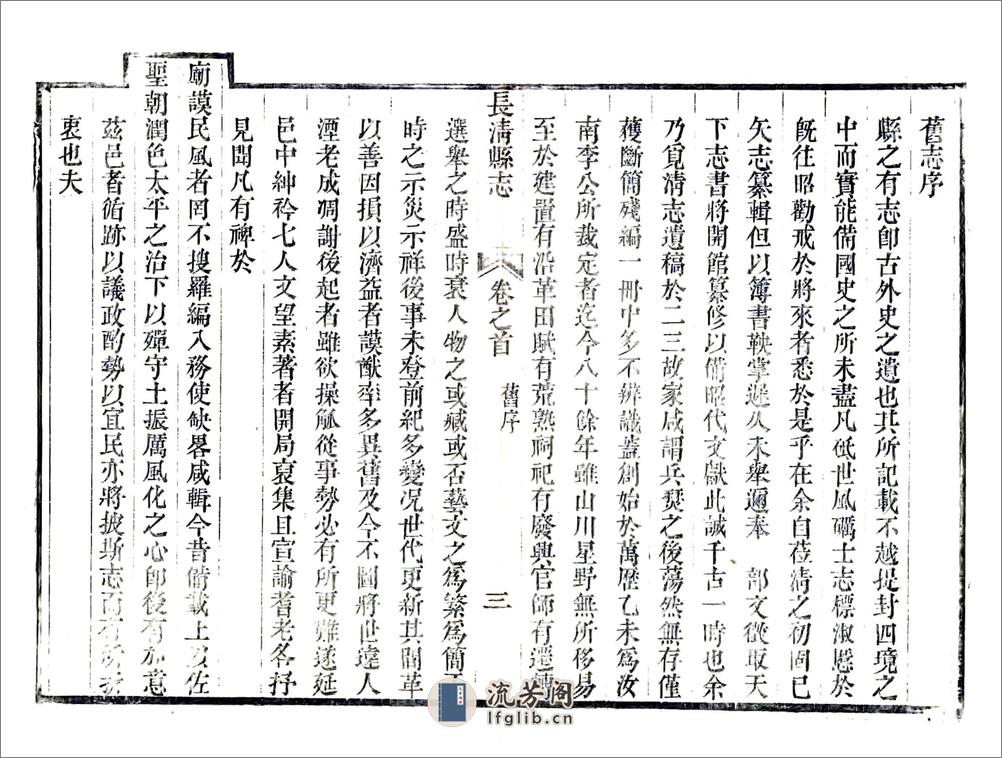 舊志序
縣之有志卽古外史之遺也其所記載不越提封四境之
中而實能備國史之所未盡凡砥世風礪士志標淑慝於
旣往昭勸戒於將來者悉於是乎在余自莅清之初固已
矢志纂輯但以簿書鞅掌遲久未舉邇奉 部文徵取天
下志書將開館纂修以備昭代文獻此誠千古一時也余
乃覓清志遺稿於二三故家咸謂兵燹之後蕩然無存僅
獲斷簡殘編一冊中多不辨識蓋創始於萬歷乙未爲汝
南李公所裁定者迄今八十餘年雖山川星野無所移易
至於建置有沿革田賦有荒熟祠祀有廢興官師有遷轉
長清縣志
卷之首
舊序
三
選舉之時盛時衰人物之或臧或否藝文之爲繁爲簡
時之示災示祥後事未登前紀多變况世代更新其間革
以善因損以濟益者謨猷率多異舊及今不圖將世遠人
湮老成凋謝後起者雖欲操觚從事勢必有所更難遂延
邑中紳衿七人文望素著者開局裒集且宣諭耆老各抒
見聞凡有裨於
廟謨民風者罔不搜羅編入務使缺畧咸輯今昔備載上以佐
聖朝潤色太平之治下以殫守土振厲風化之心卽後有加意
茲邑者循跡以議政酌勢以宜民亦將披斯志而有所折
衷也夫
流芳阁
lfglib.cn